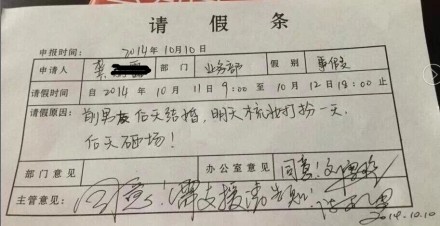 请假条
申报时间： 2014年10月10日
申请人 部门 业务部 假别 事假
请假时间 自2014年10月11日9:00至10月12日18:00止
请假原因： 前男友后天结婚，明天梳妆打扮一天，
后天砸场！
部门意见 办公室意见 同意！
主管意见 同意！需支援请告知！
2014.10.10